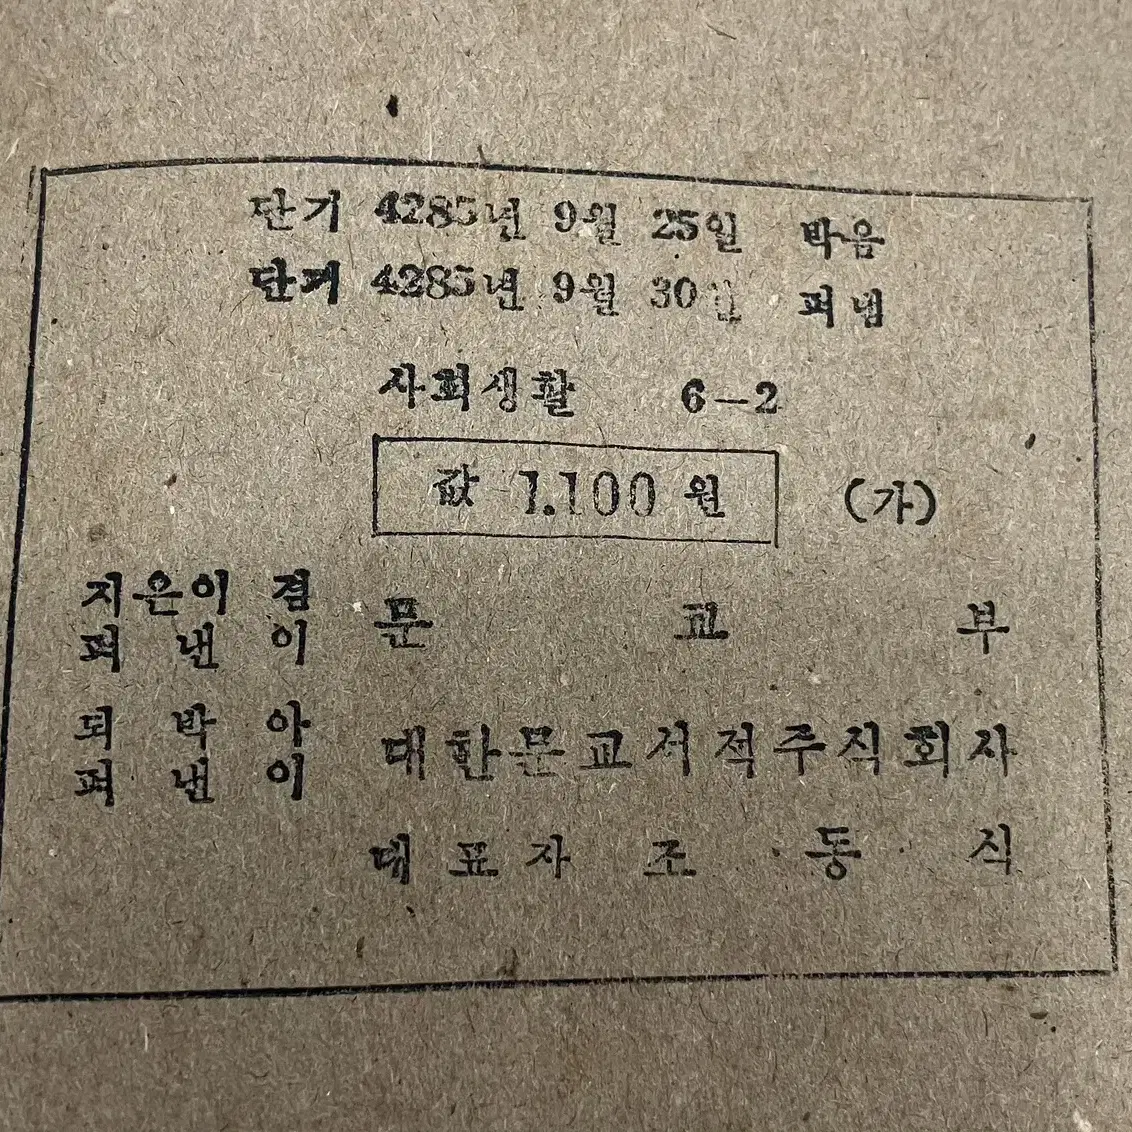 단기 4285년 9월 25일 박음
단기 4285년 9월 30일 펴냄
사회생활 6-2
값 1.100 원 (가)
지은이 겸
펴낸이 문교부
되박아
펴낸이 대한문교서적주식회사
대표자 조동식